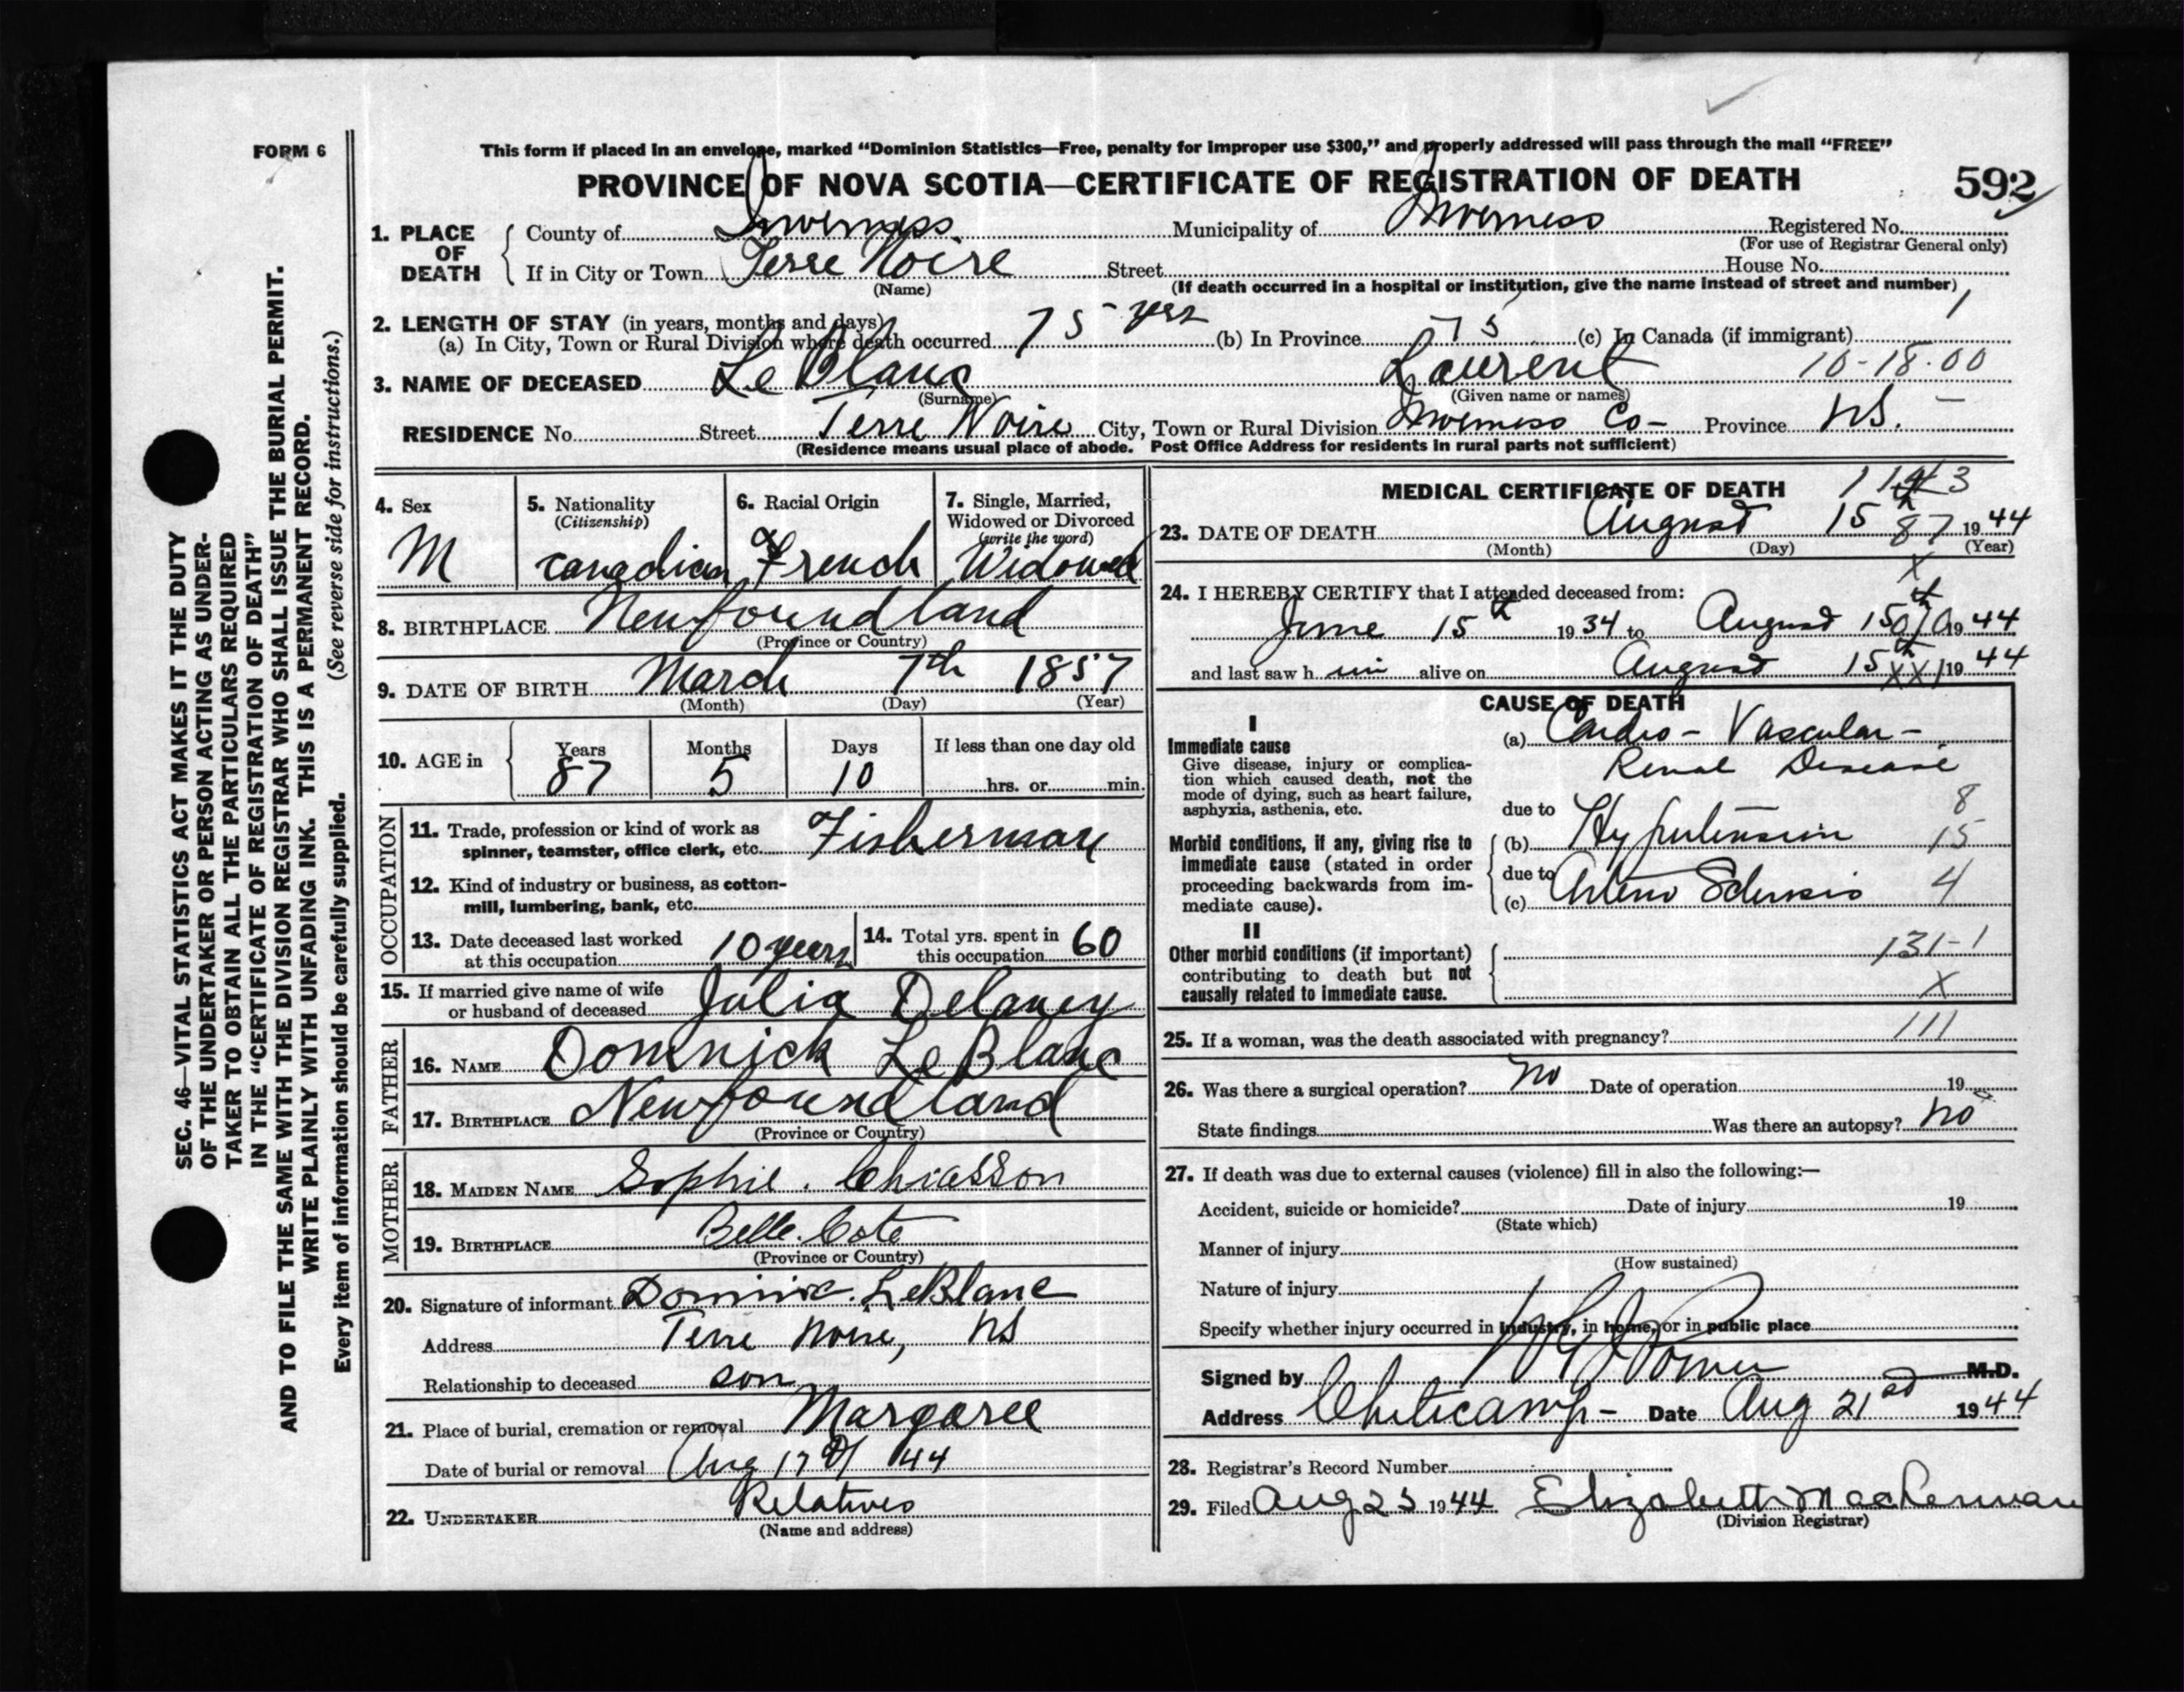 FORM 6
This form if placed in an envelope, marked “Dominion Statistics—Free, penalty for improper use $300,” and properly addressed will pass through the mail “FREE”
PROVINCE OF NOVA SCOTIA—CERTIFICATE OF REGISTRATION OF DEATH
592
1. PLACE OF DEATH
County of Inverness Municipality of Inverness Registered No.
(For use of Registrar General only)
If in City or Town Terre Noire Street House No.
(Name)
(If death occurred in a hospital or institution, give the name instead of street and number)
2. LENGTH OF STAY (in years, months and days)
(a) In City, Town or Rural Division where death occurred 75 yrs (b) In Province 75 (c) In Canada (if immigrant)
3. NAME OF DECEASED Le Blanc Laurent 10-18-00
(Surname) (Given name or names)
RESIDENCE No. Street Terre Noire City, Town or Rural Division Inverness Co- Province NS.
(Residence means usual place of abode. Post Office Address for residents in rural parts not sufficient)
4. Sex
M
5. Nationality
(Citizenship)
Canadian
6. Racial Origin
French
7. Single, Married,
Widowed or Divorced
(write the word)
Widowed
8. BIRTHPLACE Newfoundland
(Province or Country)
9. DATE OF BIRTH March 7th 1857
(Month) (Day) (Year)
10. AGE in
Years Months Days If less than one day old
87 5 10 hrs. or min.
OCCUPATION
11. Trade, profession or kind of work as
spinner, teamster, office clerk, etc. Fisherman
12. Kind of industry or business, as cotton-
mill, lumbering, bank, etc.
13. Date deceased last worked
at this occupation 10 years
14. Total yrs. spent in
this occupation 60
15. If married give name of wife
or husband of deceased Julia Delaney
FATHER
16. NAME Domnick LeBlanc
17. BIRTHPLACE Newfoundland
(Province or Country)
MOTHER
18. MAIDEN NAME Sophie. Chiasson
19. BIRTHPLACE Belle. Cote
(Province or Country)
20. Signature of informant Dominic. LeBlanc
Address Terre Noire, NS
Relationship to deceased son
21. Place of burial, cremation or removal Margaree
Date of burial or removal Aug 17 44
22. UNDERTAKER Relatives
(Name and address)
MEDICAL CERTIFICATE OF DEATH
23. DATE OF DEATH August 15th 1944
(Month) (Day) (Year)
87
24. I HEREBY CERTIFY that I attended deceased from:
June 15th 1934 to August 15th 1944
and last saw him alive on August 15th 1944
CAUSE OF DEATH
I
Immediate cause
Give disease, injury or complica-
tion which caused death, not the
mode of dying, such as heart failure,
asphyxia, asthenia, etc.
(a) Cardio-Vascular-
Renal Disease
due to
Morbid conditions, if any, giving rise to
immediate cause (stated in order
proceeding backwards from im-
mediate cause).
8
(b) Hypertension 15
due to
(c) Arterio Sclerosis 4
II
Other morbid conditions (if important)
contributing to death but not
causally related to immediate cause.
131-1
X
25. If a woman, was the death associated with pregnancy? 111
26. Was there a surgical operation? No Date of operation 19
State findings Was there an autopsy? No
27. If death was due to external causes (violence) fill in also the following:—
Accident, suicide or homicide? Date of injury 19
(State which)
Manner of injury
(How sustained)
Nature of injury
Specify whether injury occurred in industry, in home, or in public place
Signed by M.D.
Address Cheticamp- Date Aug 21 1944
28. Registrar's Record Number
29. Filed Aug 25 1944 Elizabeth MacLennan
(Division Registrar)
SEC. 46—VITAL STATISTICS ACT MAKES IT THE DUTY
OF THE UNDERTAKER OR PERSON ACTING AS UNDER-
TAKER TO OBTAIN ALL THE PARTICULARS REQUIRED
IN THE “CERTIFICATE OF REGISTRATION OF DEATH”
AND TO FILE THE SAME WITH THE DIVISION REGISTRAR WHO SHALL ISSUE THE BURIAL PERMIT.
WRITE PLAINLY WITH UNFADING INK. THIS IS A PERMANENT RECORD.
Every item of information should be carefully supplied. (See reverse side for instructions.)